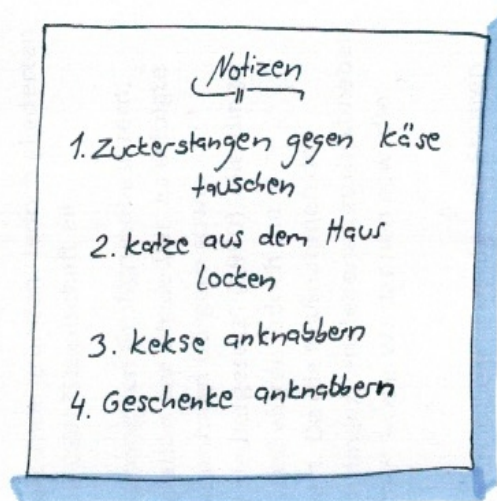 Notizen
1. Zuckerstangen gegen käse
tauschen
2. katze aus dem Haus
locken
3. kekse anknabbern
4. Geschenke anknabbern